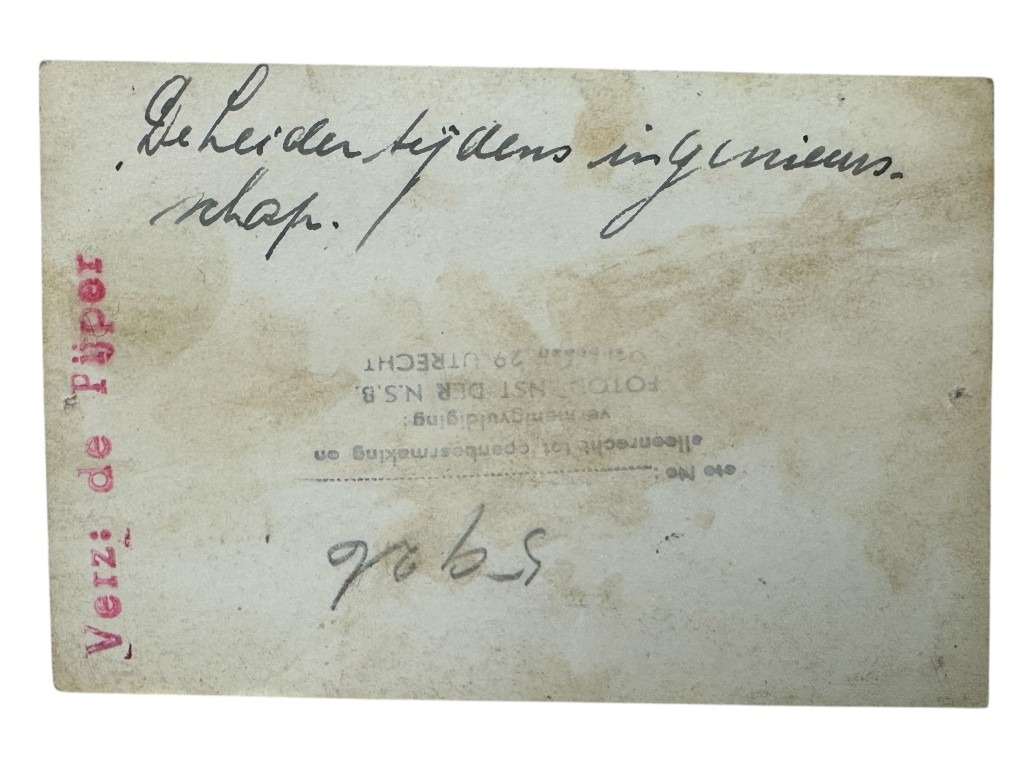 De Leider tijdens ingenieurs-
schap.
Verz: de Pijper
Foto No:
alleenrecht tot openbaarmaking en
vermenigvuldiging:
FOTODIENST DER N.S.B.
29 UTRECHT